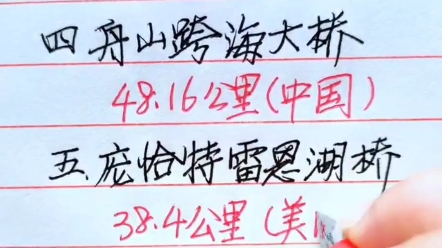 四舟山跨海大桥
48.16公里(中国)
五.庞恰特雷恩湖桥
38.4公里(美